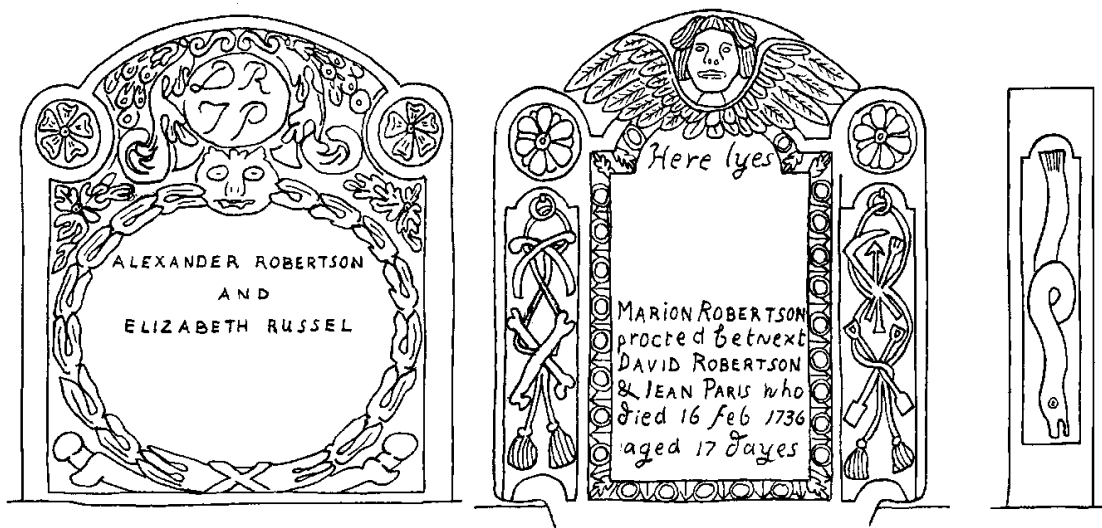 DR
JP
ALEXANDER ROBERTSON
AND
ELIZABETH RUSSEL
Here lyes
MARION ROBERTSON
procred betwext
DAVID ROBERTSON
& JEAN PARIS who
died 16 feb 1736
aged 17 dayes